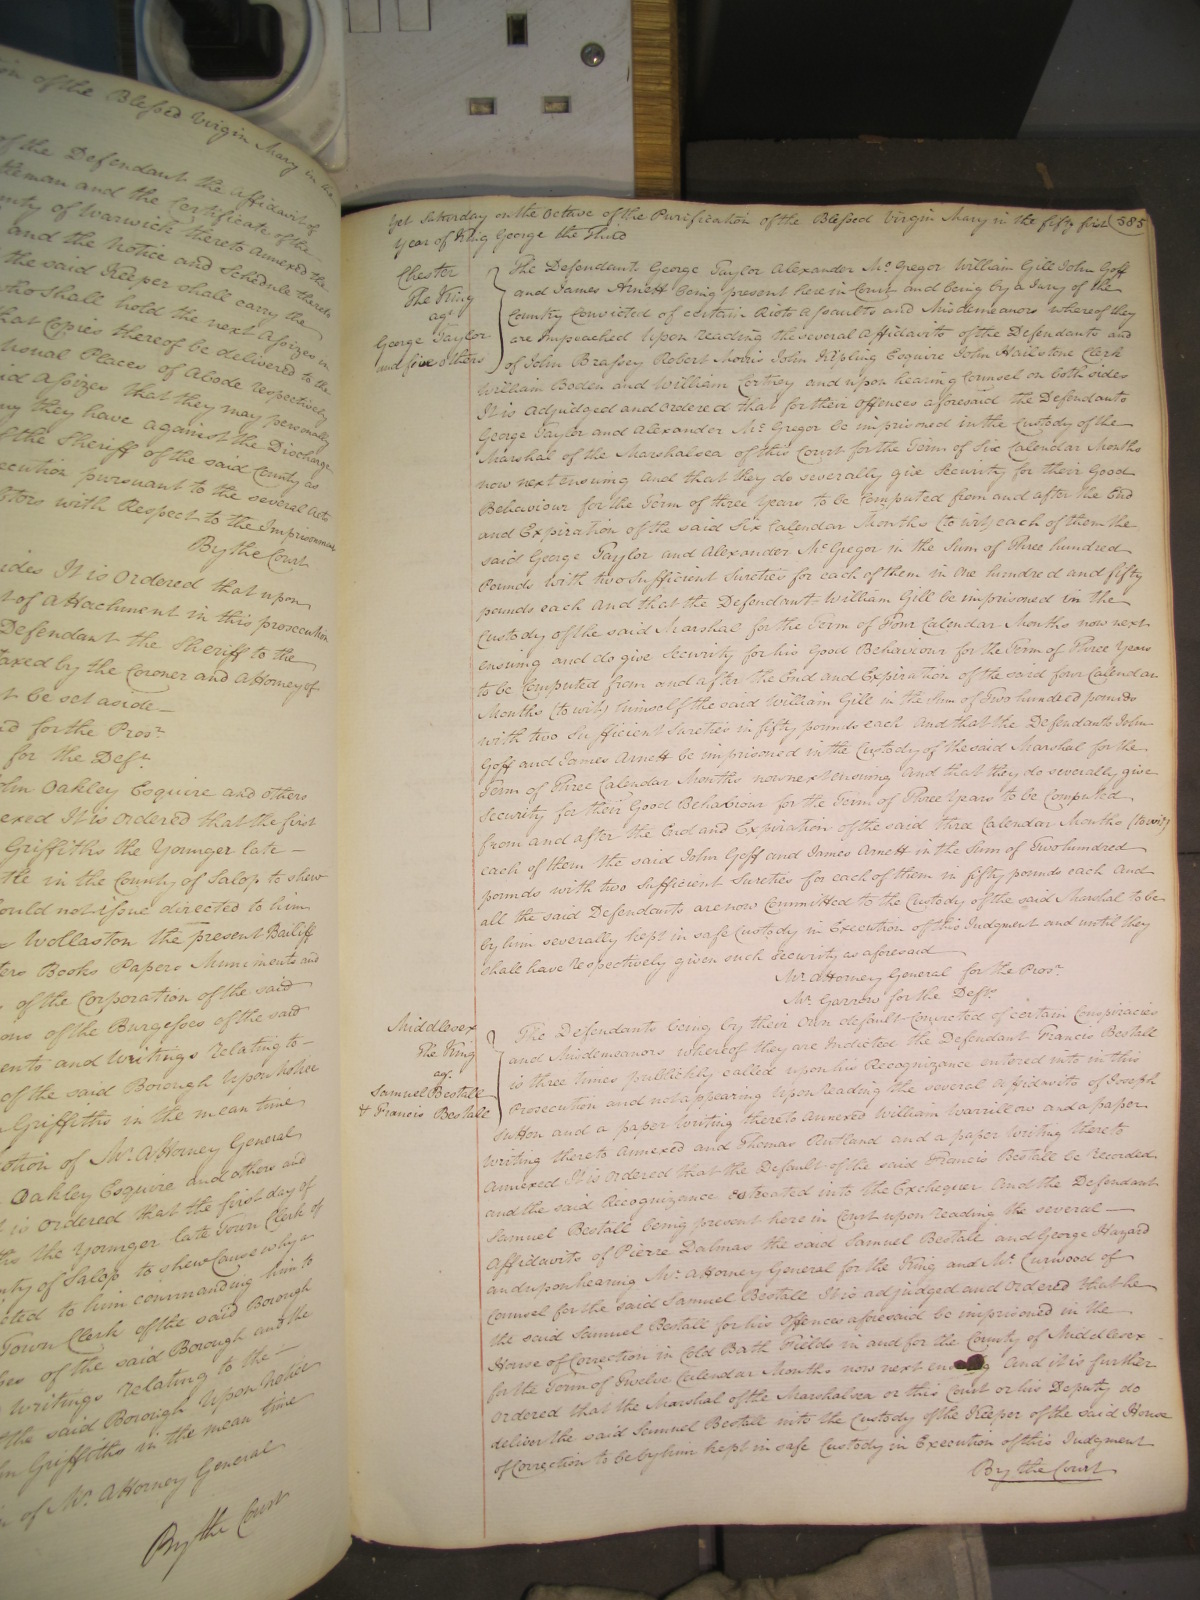 on of the Blessed Virgin Mary in the
of the Defendant the Affidavit of
tleman and the Certificate of the
nty of Warwick thereto annexed the
and the Notice and Schedule thereto
the said Keeper shall carry the
who shall hold the next Assizes in
that Copies thereof be delivered to the
usual Places of Abode respectively
id Assizes that they may personally
ny they have against the Discharge
of the Sheriff of the said County as
ecution pursuant to the several Acts
tors with Respect to the Imprisonment
By the Court
ides It is Ordered that upon
t of Attachment in this prosecution
Defendant the Sheriff to the
taxed by the Coroner and Attorney of
t be set aside
d for the Prosr.
for the Deft.
ohn Oakley Esquire and others
exed It is ordered that the first
Griffiths the Younger late
tle in the County of Salop to shew
ould not issue directed to him
Wollaston the present Bailiff
ters Books Papers Muniments and
of the Corporation of the said
ons of the Burgesses of the said
ents and Writings relating to
of the said Borough Upon notice
Griffiths in the mean time
otion of Mr. Attorney General
Oakley Esquire and others and
t is ordered that the first day of
ths the Younger late Town Clerk of
nty of Salop to shew Cause why a
cted to him commanding him to
Town Clerk of the said Borough
es of the said Borough and the
Writings relating to the
the said Borough Upon Notice
hn Griffiths in the mean time
n of Mr. Attorney General
By the Court
Yet Saturday on the Octave of the Purification of the Blessed Virgin Mary in the fifty first 385
Year of King George the Third
Chester
The King
agt.
George Taylor
and five others
The Defendants George Taylor Alexander Mc.Gregor William Gill John Goff
and James Arnett being present here in Court and being by a Jury of the
Country Convicted of certain Riots Assaults and Misdemeanors whereof they
are Impeached Upon reading the several Affidavits of the Defendants and
of John Brassey Robert Morris John Kipling Esquire John Hailstone Clerk
William Booden and William Cortney and upon hearing Counsel on both sides
It is Adjudged and ordered that for their Offences aforesaid the Defendants
George Taylor and Alexander Mc.Gregor be imprisoned in the Custody of the
Marshal of the Marshalsea of this Court for the Term of Six Calendar Months
now next ensuing And that they do severally give Security for their Good
Behaviour for the Term of three Years to be Computed from and after the End
and Expiration of the said Six Calendar Months (to wit) each of them the
said George Taylor and Alexander Mc.Gregor in the Sum of Three hundred
Pounds with two Sufficient Sureties for each of them in One hundred and fifty
pounds each And that the Defendant William Gill be imprisoned in the
Custody of the said Marshal for the Term of Four Calendar Months now next
ensuing and do give Security for his Good Behaviour for the Term of Three Years
to be Computed from and after the End and Expiration of the said four Calendar
Months (to wit) himself the said William Gill in the Sum of Two hundred pounds
with two Sufficient Sureties in fifty pounds each And that the Defendants John
Goff and James Arnett be imprisoned in the Custody of the said Marshal for the
Term of Three Calendar Months now next ensuing And that they do severally give
Security for their Good Behaviour for the Term of Three Years to be Computed
from and after the End and Expiration of the said three Calendar Months (to wit)
each of them the said John Goff and James Arnett in the Sum of Two hundred
pounds with two Sufficient Sureties for each of them in fifty pounds each And
all the said Defendants are now Committed to the Custody of the said Marshal to be
by him severally kept in safe Custody in Execution of this Judgment and until they
shall have respectively given such Security as aforesaid
Mr. Attorney General for the Prosr.
Mr. Garrow for the Defts.
Middlesex
The King
agt.
Samuel Bestall
& Francis Bestall
The Defendants being by their own default Convicted of certain Conspiracies
and Misdemeanors whereof they are Indicted the Defendant Francis Bestall
is three times publickly called upon his Recognizance entered into in this
Prosecution and not appearing Upon reading the several Affidavits of Joseph
Sutton and a paper Writing thereto annexed William Warrillow and a paper
Writing thereto annexed and Thomas Rutland and a paper Writing thereto
annexed It is ordered that the Default of the said Francis Bestall be recorded
and the said Recognizance estreated into the Exchequer And the Defendant
Samuel Bestall being present here in Court upon reading the several
Affidavits of Pierre Dalmas the said Samuel Bestall and George Hazard
and upon hearing Mr. Attorney General for the King and Mr. Curwood of
Counsel for the said Samuel Bestall It is adjudged and ordered that he
the said Samuel Bestall for his Offences aforesaid be imprisoned in the
House of Correction in Cold Bath Fields in and for the County of Middlesex
for the Term of Twelve Calendar Months now next And it is further
ordered that the Marshal of the Marshalsea or this Court or his Deputy do
deliver the said Samuel Bestall into the Custody of the Keeper of the said House
of Correction to be by him kept in safe Custody in Execution of this Judgment
By the Court